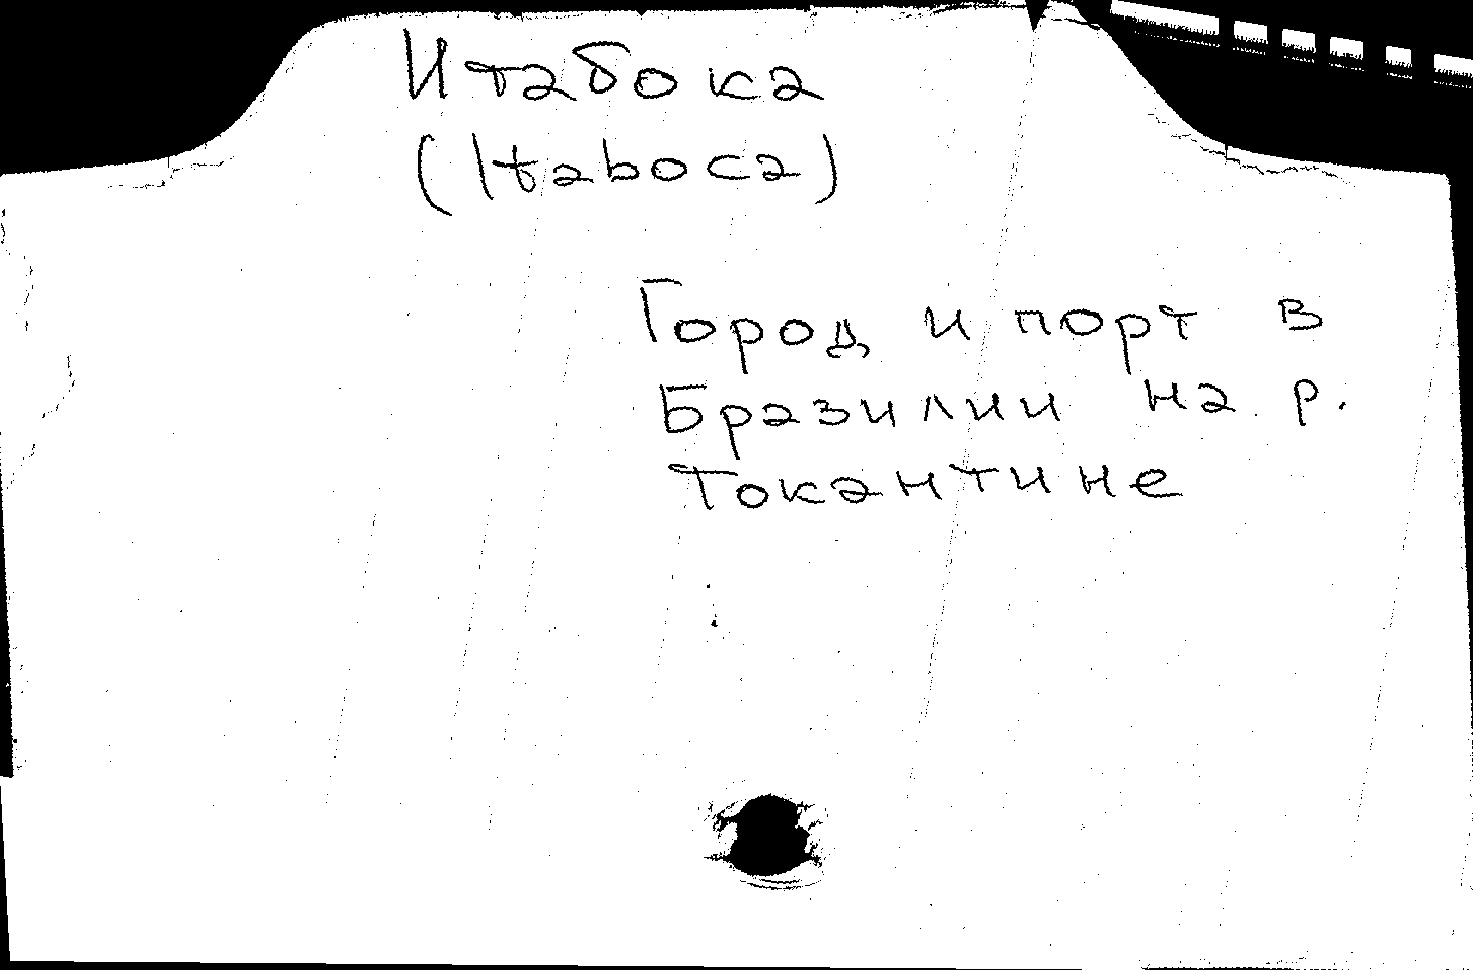 Итабока
(Itaboca)
Город и порт в
Бразилии на р.
Токантине